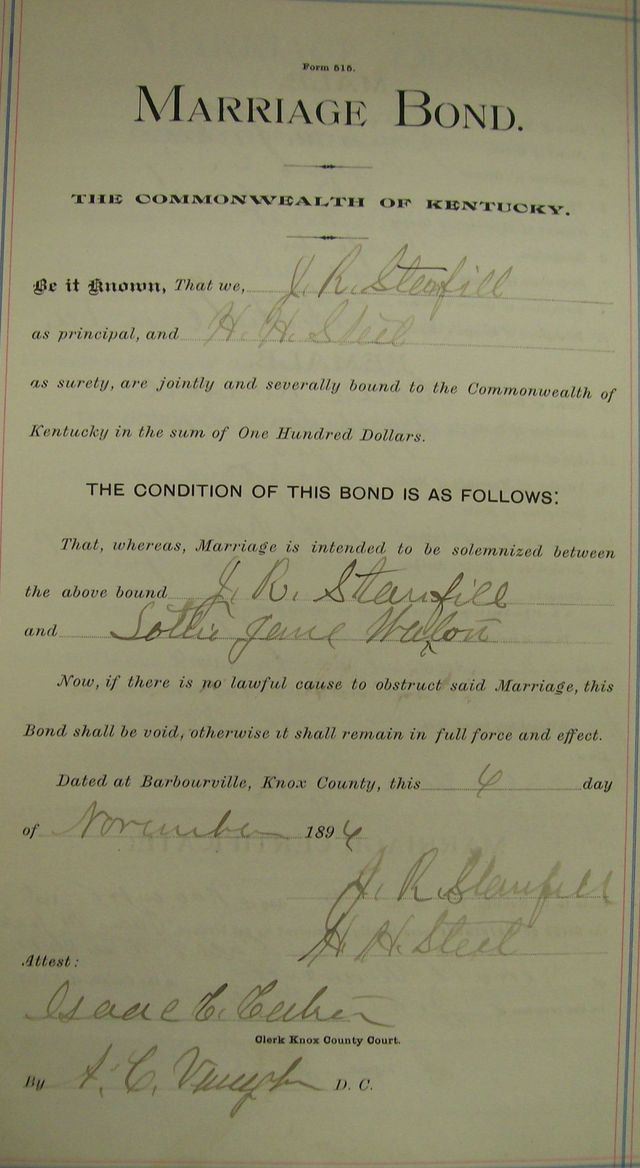 Form 515.
MARRIAGE BOND.
THE COMMONWEALTH OF KENTUCKY.
Be it Known, That we, J. R. Stanfill
as principal, and H. H. Steel
as surety, are jointly and severally bound to the Commonwealth of
Kentucky in the sum of One Hundred Dollars.
THE CONDITION OF THIS BOND IS AS FOLLOWS:
That, whereas, Marriage is intended to be solemnized between
the above bound J. R. Stanfill
and Lottie Jane
Now, if there is no lawful cause to obstruct said Marriage, this
Bond shall be void, otherwise it shall remain in full force and effect.
Dated at Barbourville, Knox County, this day
of November 189
J. R. Stanfill
H. H. Steel
Attest:
Isaac
Clerk Knox County Court.
By D. C.